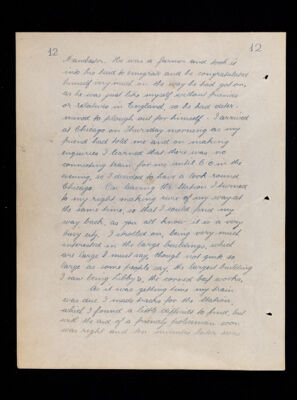 12 12
Manchester. He was a farmer and took it
into his head to emigrate and he congratulated
himself very much on the way he had got on,
as he was just like myself without friends
or relatives in England, so he had deter-
mined to plough out for himself. I arrived
at Chicago on Thursday morning as my
friend had told me and on making
enquiries I learned that there was no
connecting train for me until 6 o in the
evening, so I decided to have a look round
Chicago. On leaving the Station I turned
to my right making sure of my way at
the same time, so that I could find my
way back, as you all know it is a very
busy city. I strolled on, being very much
interested in the large buildings, which
are large I must say, though not quite so
large as some people say, the largest building
I saw being Libby's, the corned beef works,
As it was getting time my train
was due I made tracks for the Station,
which I found a little difficult to find, but
with the aid of a friendly policeman soon
was right and ten minutes later was